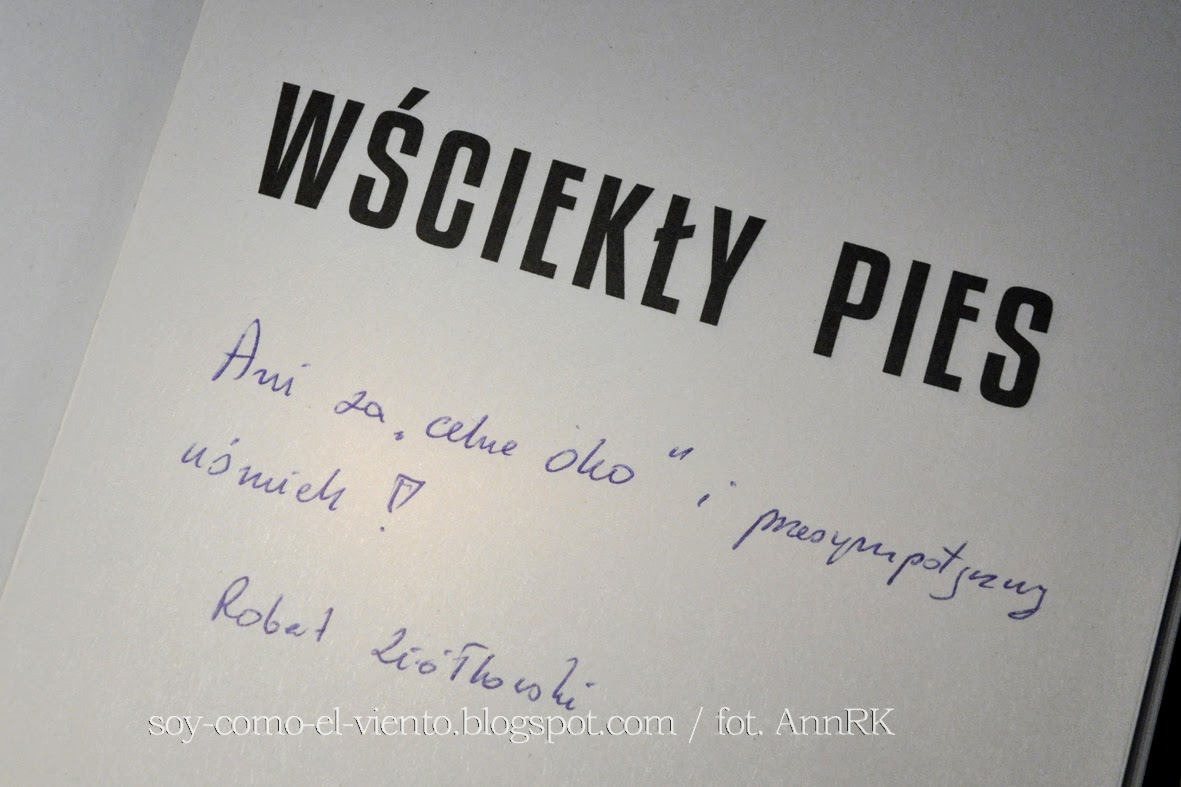 WŚCIEKŁY PIES
Ani za „celne oko" i przesympatyczny
uśmiech!
Robert Ziółkowski
soy-como-el-viento.blogspot.com / fot. AnnRK